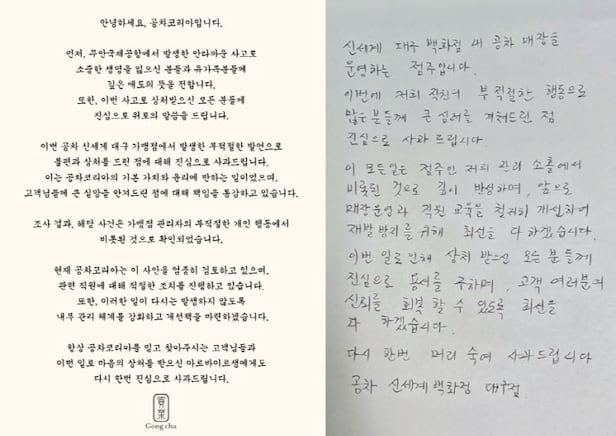 안녕하세요, 공차코리아입니다.
먼저, 무안국제공항에서 발생한 안타까운 사고로
소중한 생명을 잃으신 분들과 유가족분들께
깊은 애도의 뜻을 전합니다.
또한, 이번 사고로 상처받으신 모든 분들께
진심으로 위로의 말씀을 드립니다.
이번 공차 신세계 대구 가맹점에서 발생한 부적절한 발언으로
불편과 상처를 드린 점에 대해 진심으로 사과드립니다.
이는 공차코리아의 기본 가치와 윤리에 반하는 일이었으며,
고객님들께 큰 실망을 안겨드린 점에 대해 책임을 통감하고 있습니다.
조사 결과, 해당 사건은 가맹점 관리자의 부적절한 개인 행동에서
비롯된 것으로 확인되었습니다.
현재 공차코리아는 이 사안을 엄중히 검토하고 있으며,
관련 직원에 대해 적절한 조치를 진행하고 있습니다.
또한, 이러한 일이 다시는 발생하지 않도록
내부 관리 체계를 강화하고 개선책을 마련하겠습니다.
항상 공차코리아를 믿고 찾아주시는 고객님들과
이번 일로 마음의 상처를 받으신 아르바이트생에게도
다시 한번 진심으로 사과드립니다.
Gong cha
신세계 대구 백화점 내 공차 매장을
운영하는 점주입니다.
이번에 저희 직원의 부적절한 행동으로
많은 분들께 큰 심려를 끼쳐드린 점
진심으로 사과 드립니다.
이 모든일은 점주인 저희 관리 소홀에서
비롯된 것으로 깊이 반성하며, 앞으로
매장운영과 직원 교육을 철저히 개선하여
재발 방지를 위해 최선을 다 하겠습니다.
이번 일로 인해 상처 받으신 모든 분들께
진심으로 용서를 구하며, 고객 여러분께
신뢰를 회복 할 수 있도록 최선을
다 하겠습니다.
다시 한번 머리 숙여 사과드립니다
공차 신세계백화점 대구점